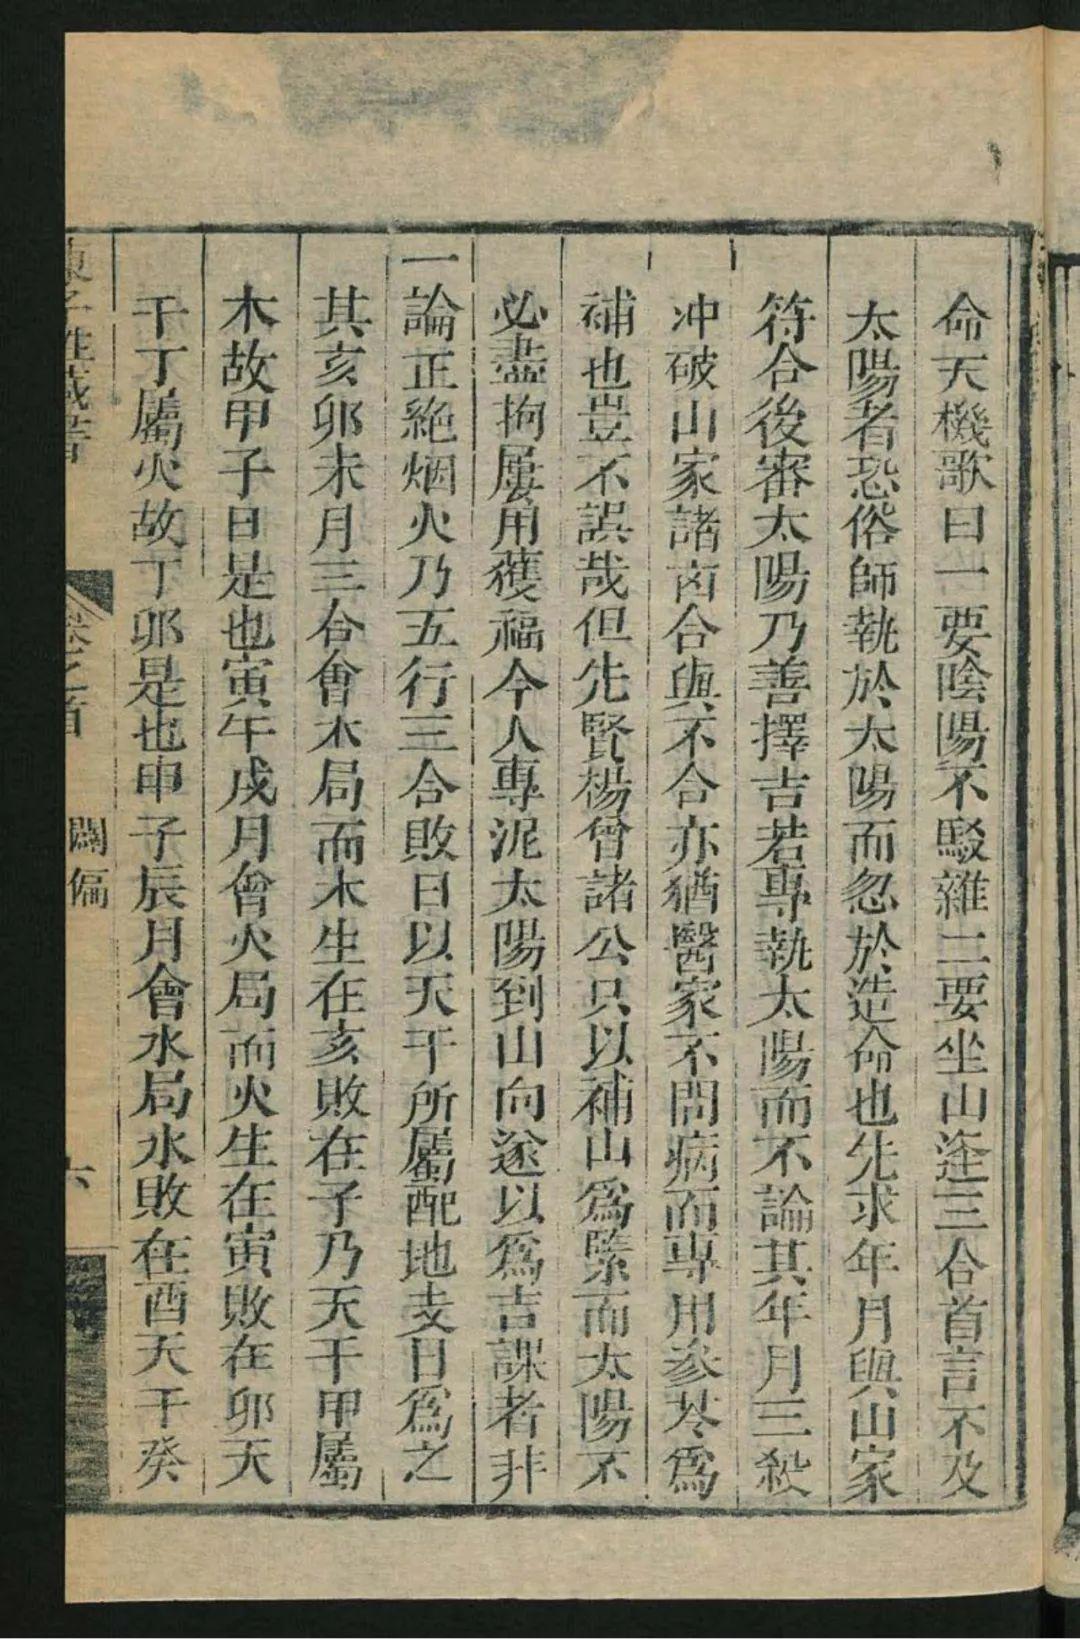 命天機歌曰一要陰陽不駁雜二要坐山逢三合首言不及
太陽者恐俗師執於太陽而忽於造命也先求年月與山家
符合後審太陽乃善擇吉若專執太陽而不論其年月三殺
冲破山家諸凶合與不合亦猶醫家不問病而專用參芪為
補也豈不誤哉但先賢楊曾諸公只以補山為緊而太陽不
必盡拘屢用獲福今人專泥太陽到山向遂以為吉課者非
一論正絶烟火乃五行三合敗日以天干所屬配地支日為之
其亥卯未月三合會木局而木生在亥敗在子乃天干甲屬
木故甲子日是也寅午戌月會火局而火生在寅敗在卯天
干丁屬火故丁卯是也申子辰月會水局水敗在酉天干癸
卷之首 闢偏 六